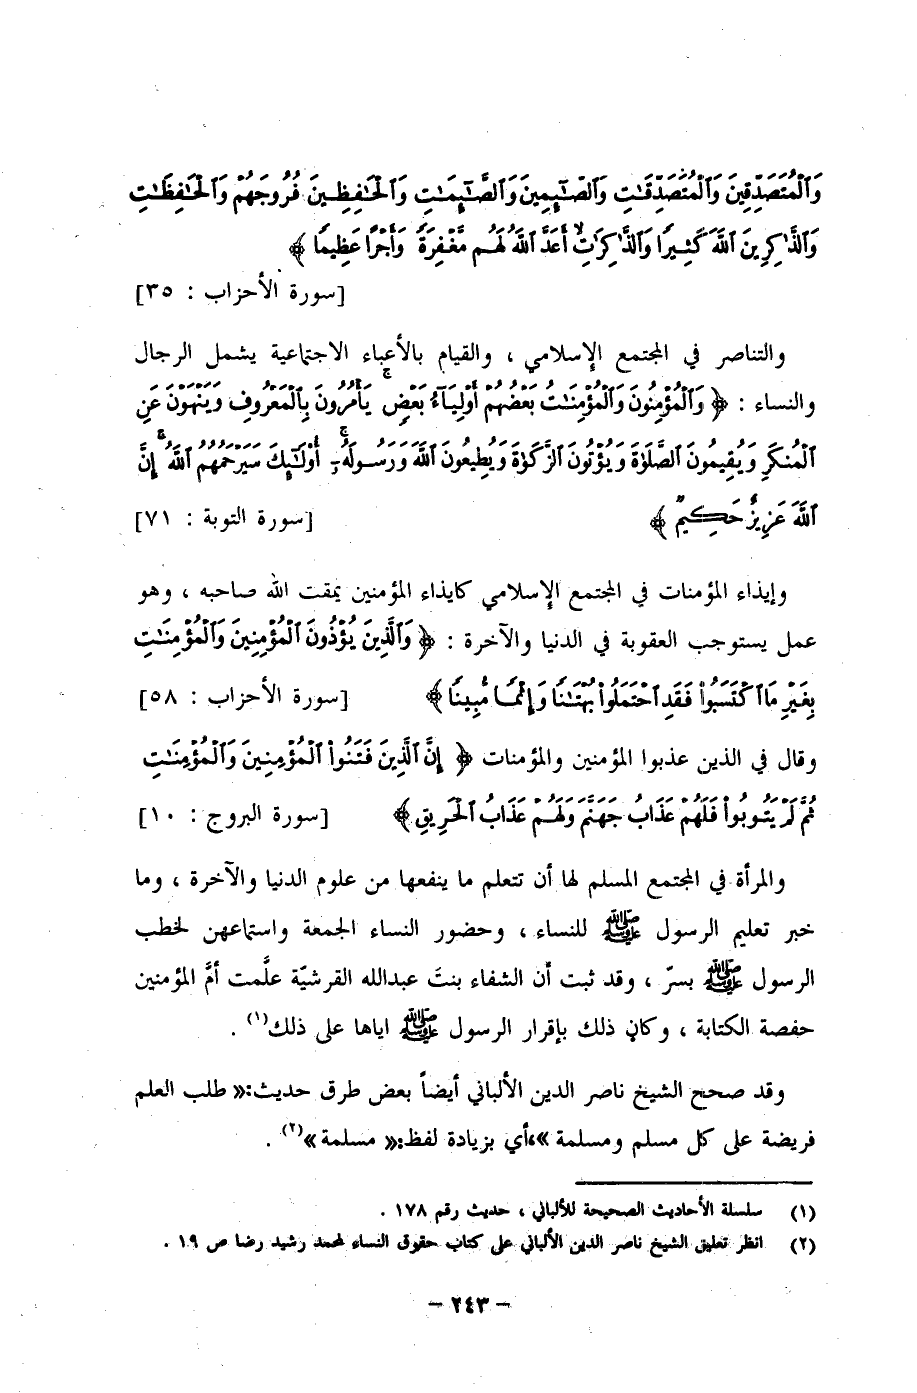 وَٱلْمُتَصَدِّقِينَ وَٱلْمُتَصَدِّقَٰتِ وَٱلصَّٰٓئِمِينَ وَٱلصَّٰٓئِمَٰتِ وَٱلْحَٰفِظِينَ فُرُوجَهُمْ وَٱلْحَٰفِظَٰتِ
وَٱلذَّٰكِرِينَ ٱللَّهَ كَثِيرًا وَٱلذَّٰكِرَٰتِ أَعَدَّ ٱللَّهُ لَهُم مَّغْفِرَةً وَأَجْرًا عَظِيمًا ﴾
[سورة الأحزاب : ٣٥]
والتناصر في المجتمع الإسلامي ، والقيام بالأعباء الاجتماعية يشمل الرجال
والنساء : ﴿ وَٱلْمُؤْمِنُونَ وَٱلْمُؤْمِنَٰتُ بَعْضُهُمْ أَوْلِيَآءُ بَعْضٍ ۚ يَأْمُرُونَ بِٱلْمَعْرُوفِ وَيَنْهَوْنَ عَنِ
ٱلْمُنكَرِ وَيُقِيمُونَ ٱلصَّلَوٰةَ وَيُؤْتُونَ ٱلزَّكَوٰةَ وَيُطِيعُونَ ٱللَّهَ وَرَسُولَهُۥٓ ۚ أُوْلَٰٓئِكَ سَيَرْحَمُهُمُ ٱللَّهُ ۗ إِنَّ
ٱللَّهَ عَزِيزٌ حَكِيمٌ ﴾ [سورة التوبة : ٧١]
وإيذاء المؤمنات في المجتمع الإسلامي كايذاء المؤمنين يمقت الله صاحبه ، وهو
عمل يستوجب العقوبة في الدنيا والآخرة : ﴿ وَٱلَّذِينَ يُؤْذُونَ ٱلْمُؤْمِنِينَ وَٱلْمُؤْمِنَٰتِ
بِغَيْرِ مَا ٱكْتَسَبُوا۟ فَقَدِ ٱحْتَمَلُوا۟ بُهْتَٰنًا وَإِثْمًا مُّبِينًا ﴾ [سورة الأحزاب : ٥٨]
وقال في الذين عذبوا المؤمنين والمؤمنات ﴿ إِنَّ ٱلَّذِينَ فَتَنُوا۟ ٱلْمُؤْمِنِينَ وَٱلْمُؤْمِنَٰتِ
ثُمَّ لَمْ يَتُوبُوا۟ فَلَهُمْ عَذَابُ جَهَنَّمَ وَلَهُمْ عَذَابُ ٱلْحَرِيقِ ﴾ [سورة البروج : ١٠]
والمرأة في المجتمع المسلم لها أن تتعلم ما ينفعها من علوم الدنيا والآخرة ، وما
خبر تعليم الرسول ﷺ للنساء ، وحضور النساء الجمعة واستماعهن لخطب
الرسول ﷺ بسرّ ، وقد ثبت أن الشفاء بنتَ عبدالله القرشيّة علَّمت أمَّ المؤمنين
حفصة الكتابة ، وكان ذلك بإقرار الرسول ﷺ اياها على ذلك(١) .
وقد صحح الشيخ ناصر الدين الألباني أيضاً بعض طرق حديث:« طلب العلم
فريضة على كل مسلم ومسلمة »،أي بزيادة لفظ:« مسلمة »(٢) .
(١) سلسلة الأحاديث الصحيحة للألباني ، حديث رقم ١٧٨ .
(٢) انظر تعليق الشيخ ناصر الدين الألباني على كتاب حقوق النساء لمحمد رشيد رضا ص ١٩ .
– ٢٤٣ –